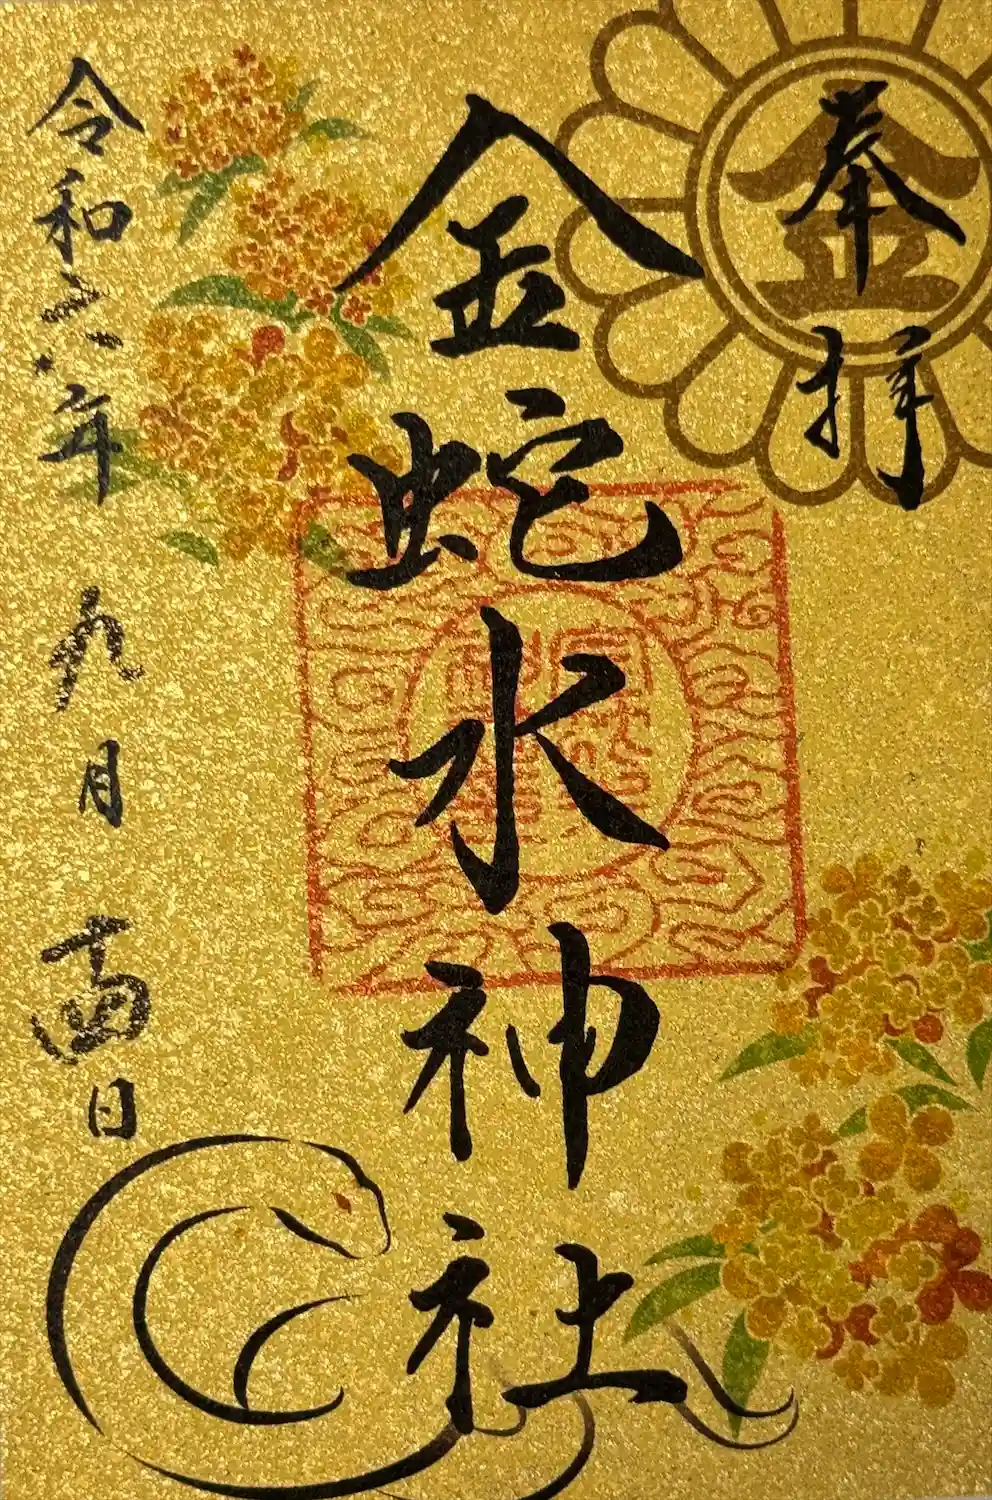 奉拝
金
金蛇水神社
令和六年九月十四日